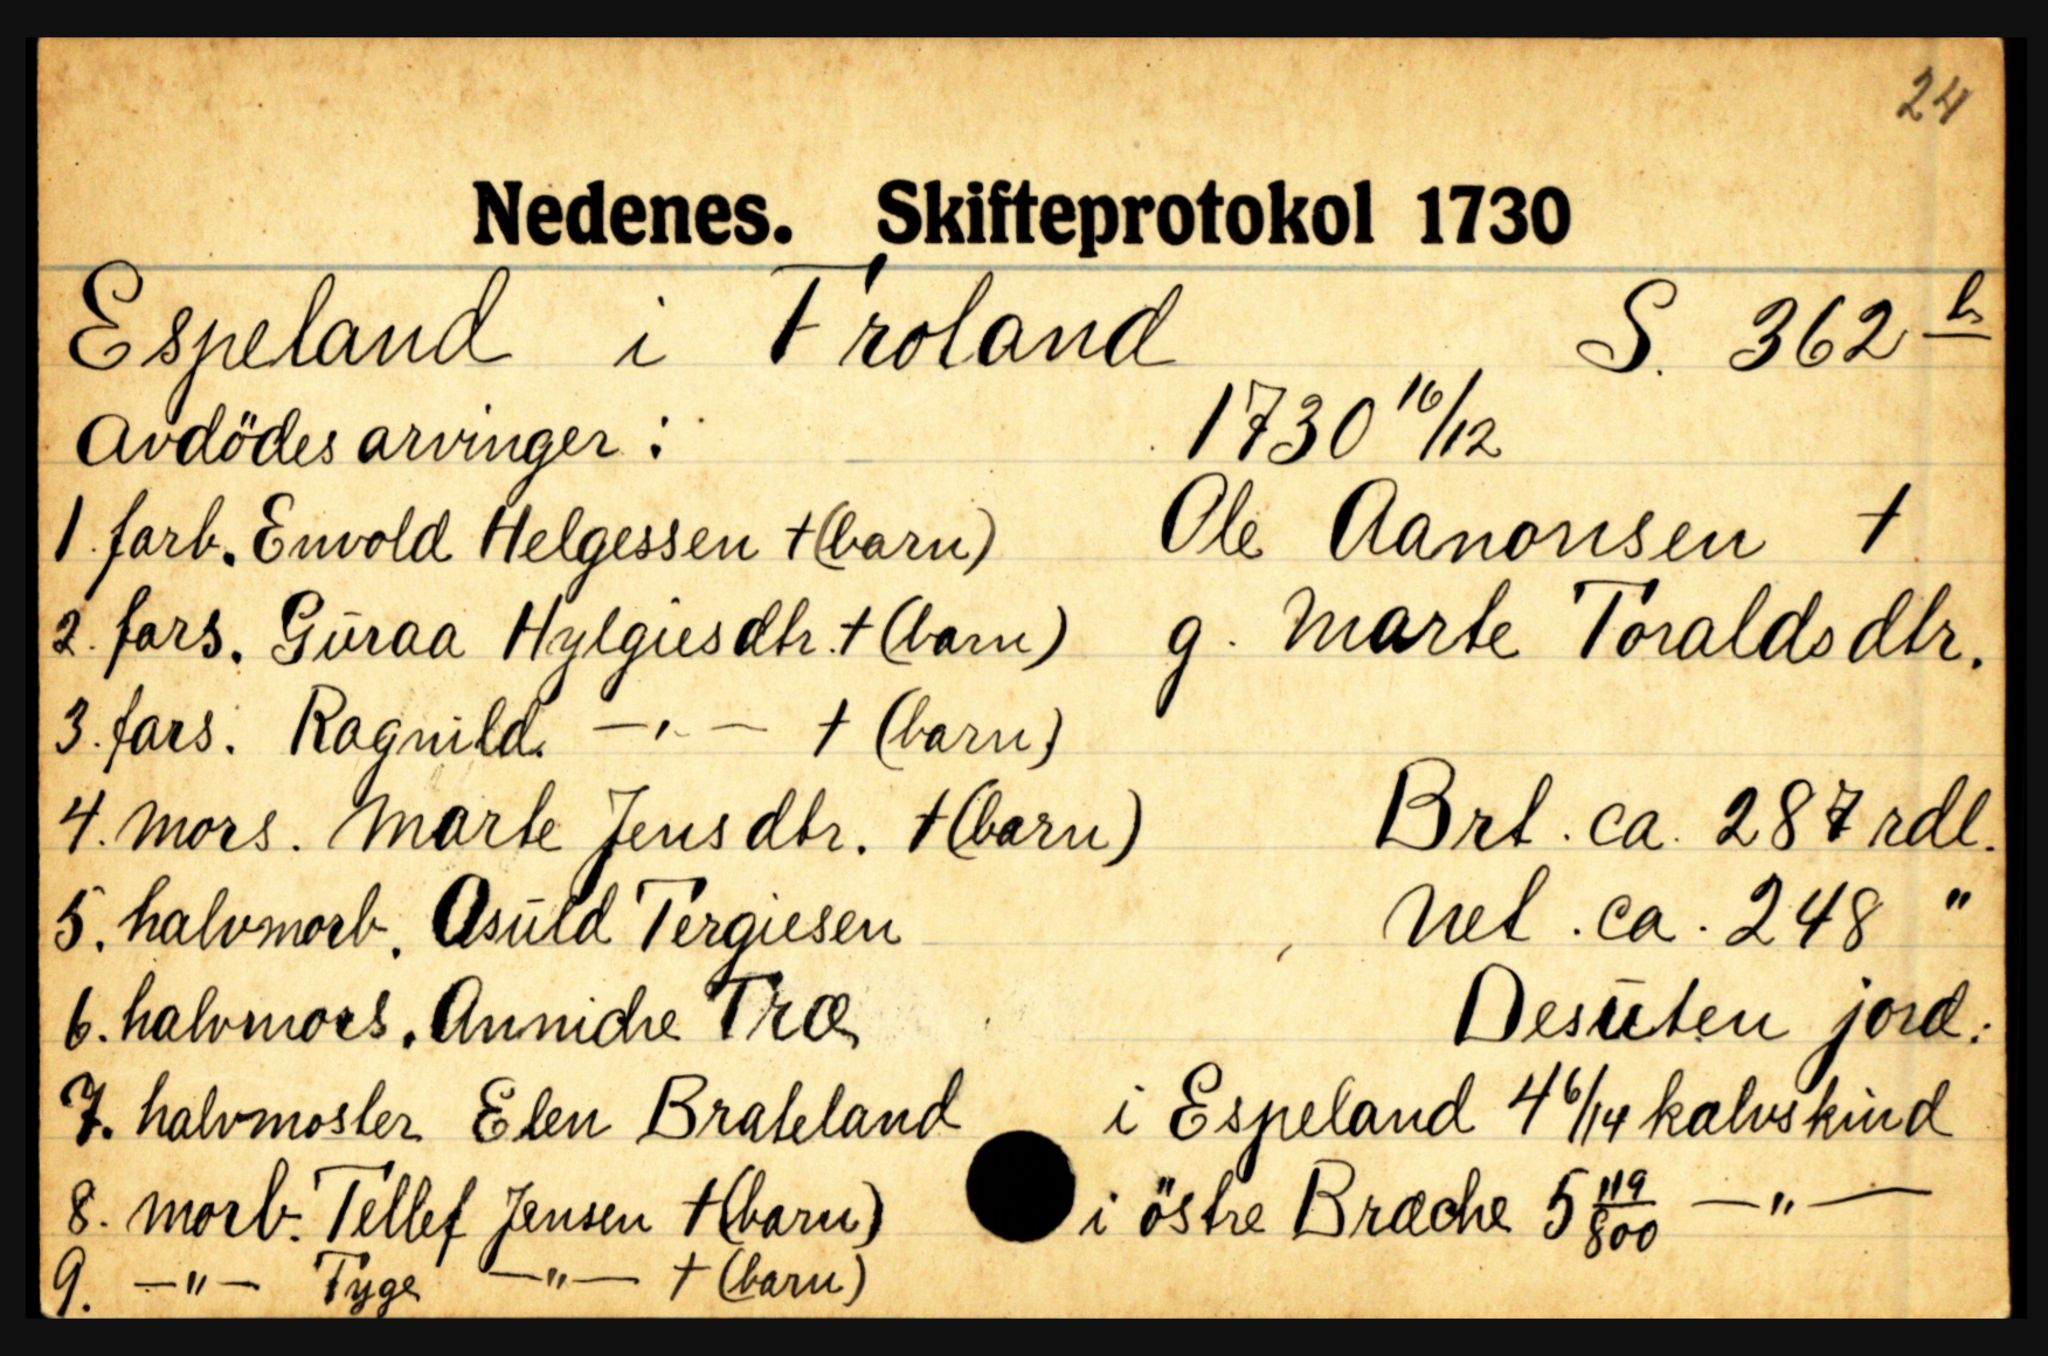 24
Nedenes. Skifteprotokol 1730
Espeland i Froland S. 362 b
Avdödes arvinger : 1730 16/12
1. farb. Envold Helgessen †(barn) Ole Aanonsen †
2. fars. Gūraa Hylgiesdtr. †(barn) g. Marte Toraldsdtr.
3. fars. Ragnild. —"— † (barn)
4. mors. Marte Jensdtr. †(barn) Brt. ca. 287 rdl.
5. halvmorb. Osūld Tergiesen Net. ca. 248 "
6. halvmors. Anniche Træ Desūten jord:
7. halvmoster Elen Brateland i Espeland 4 6/14 kalvskind
8. morb. Tellef Jensen †(barn) i östre Bræche 5 119/800 —"—
9. —"— Tyge —"— † (barn)